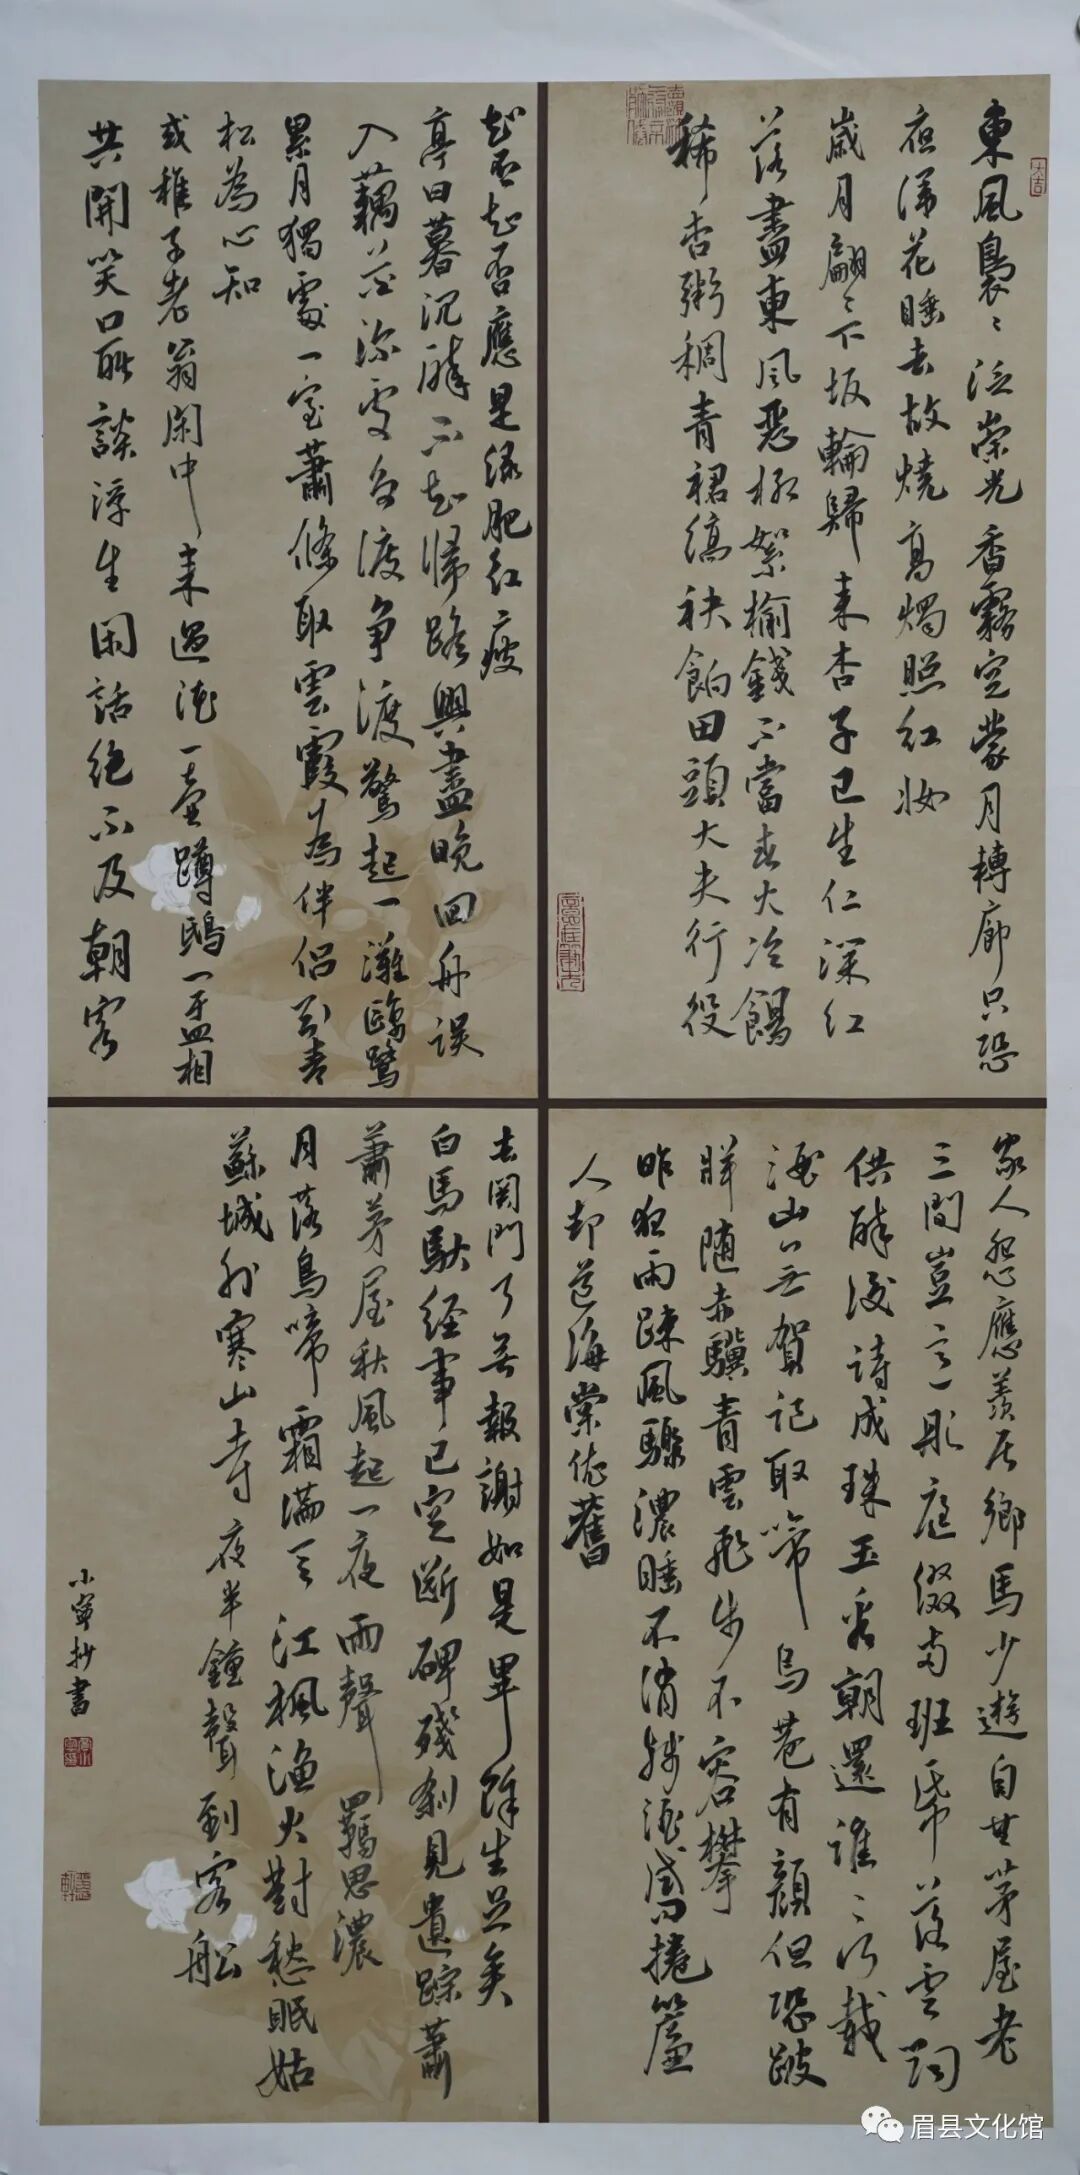 大吉
東風裊〻泛崇光香霧空蒙月轉廊只恐
夜深花睡去故燒高燭照紅妝
歲月翩〻下坂輪歸來杏子已生仁深紅
落盡東風惡柳絮榆錢不當春火冷餳
稀杏粥稠青裙縞袂餉田頭大夫行役
家人怨應羨居鄉馬少遊自無茅屋老
三間豈言彤庭綴兩班
供醉後詩成珠玉看朝還誰〻行載
酒山無賀記取啼烏巷有顏但恐跛
牂隨赤驥青雲飛步不容攀
昨夜雨疎風驟濃睡不消殘酒試問捲簾
人却道海棠依舊
知否知否應是綠肥紅瘦
亭日暮沉醉不知歸路興盡晚回舟誤
入藕花深處爭渡爭渡驚起一灘鷗鷺
累月獨處一室蕭條取雲霞為伴侶引青
松為心知
或稚子老翁閑中來過濁酒一壺蹲鴟一盂相
共開笑口所談浮生閑話絕不及朝客
去関門了無報謝如是畢餘生足矣
白馬馱经事已空断碑殘剎見遺踪蕭
蕭茅屋秋風起一夜雨聲羈思濃
月落烏啼霜滿天江楓漁火對愁眠姑
蘇城外寒山寺夜半鐘聲到客船
小寧抄書
眉县文化馆